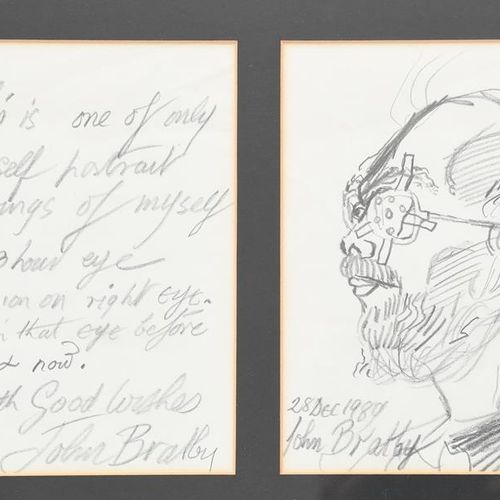 is one of only
self portrait
ings of myself
3 hour eye
ion on right eye.
that eye before
& now.
th Good Wishes
John Bratby
28 DEC 1989
John Bratby